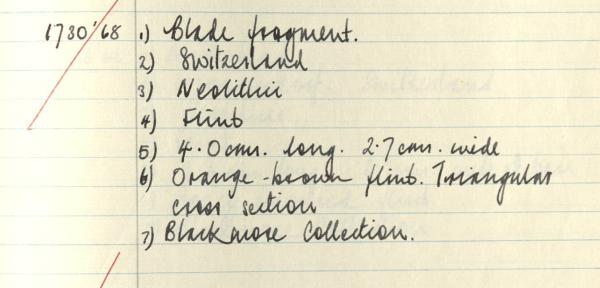 1730'68 1) Blade fragment.
2) Switzerland
3) Neolithic
4) Flint
5) 4.0cms. long. 2.7cms. wide
6) Orange-brown flint. Triangular
cross section
7) Blackmore Collection.